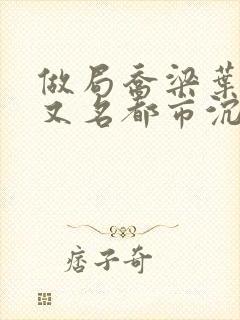 做局乔梁葉
又名都市沉
痞子奇